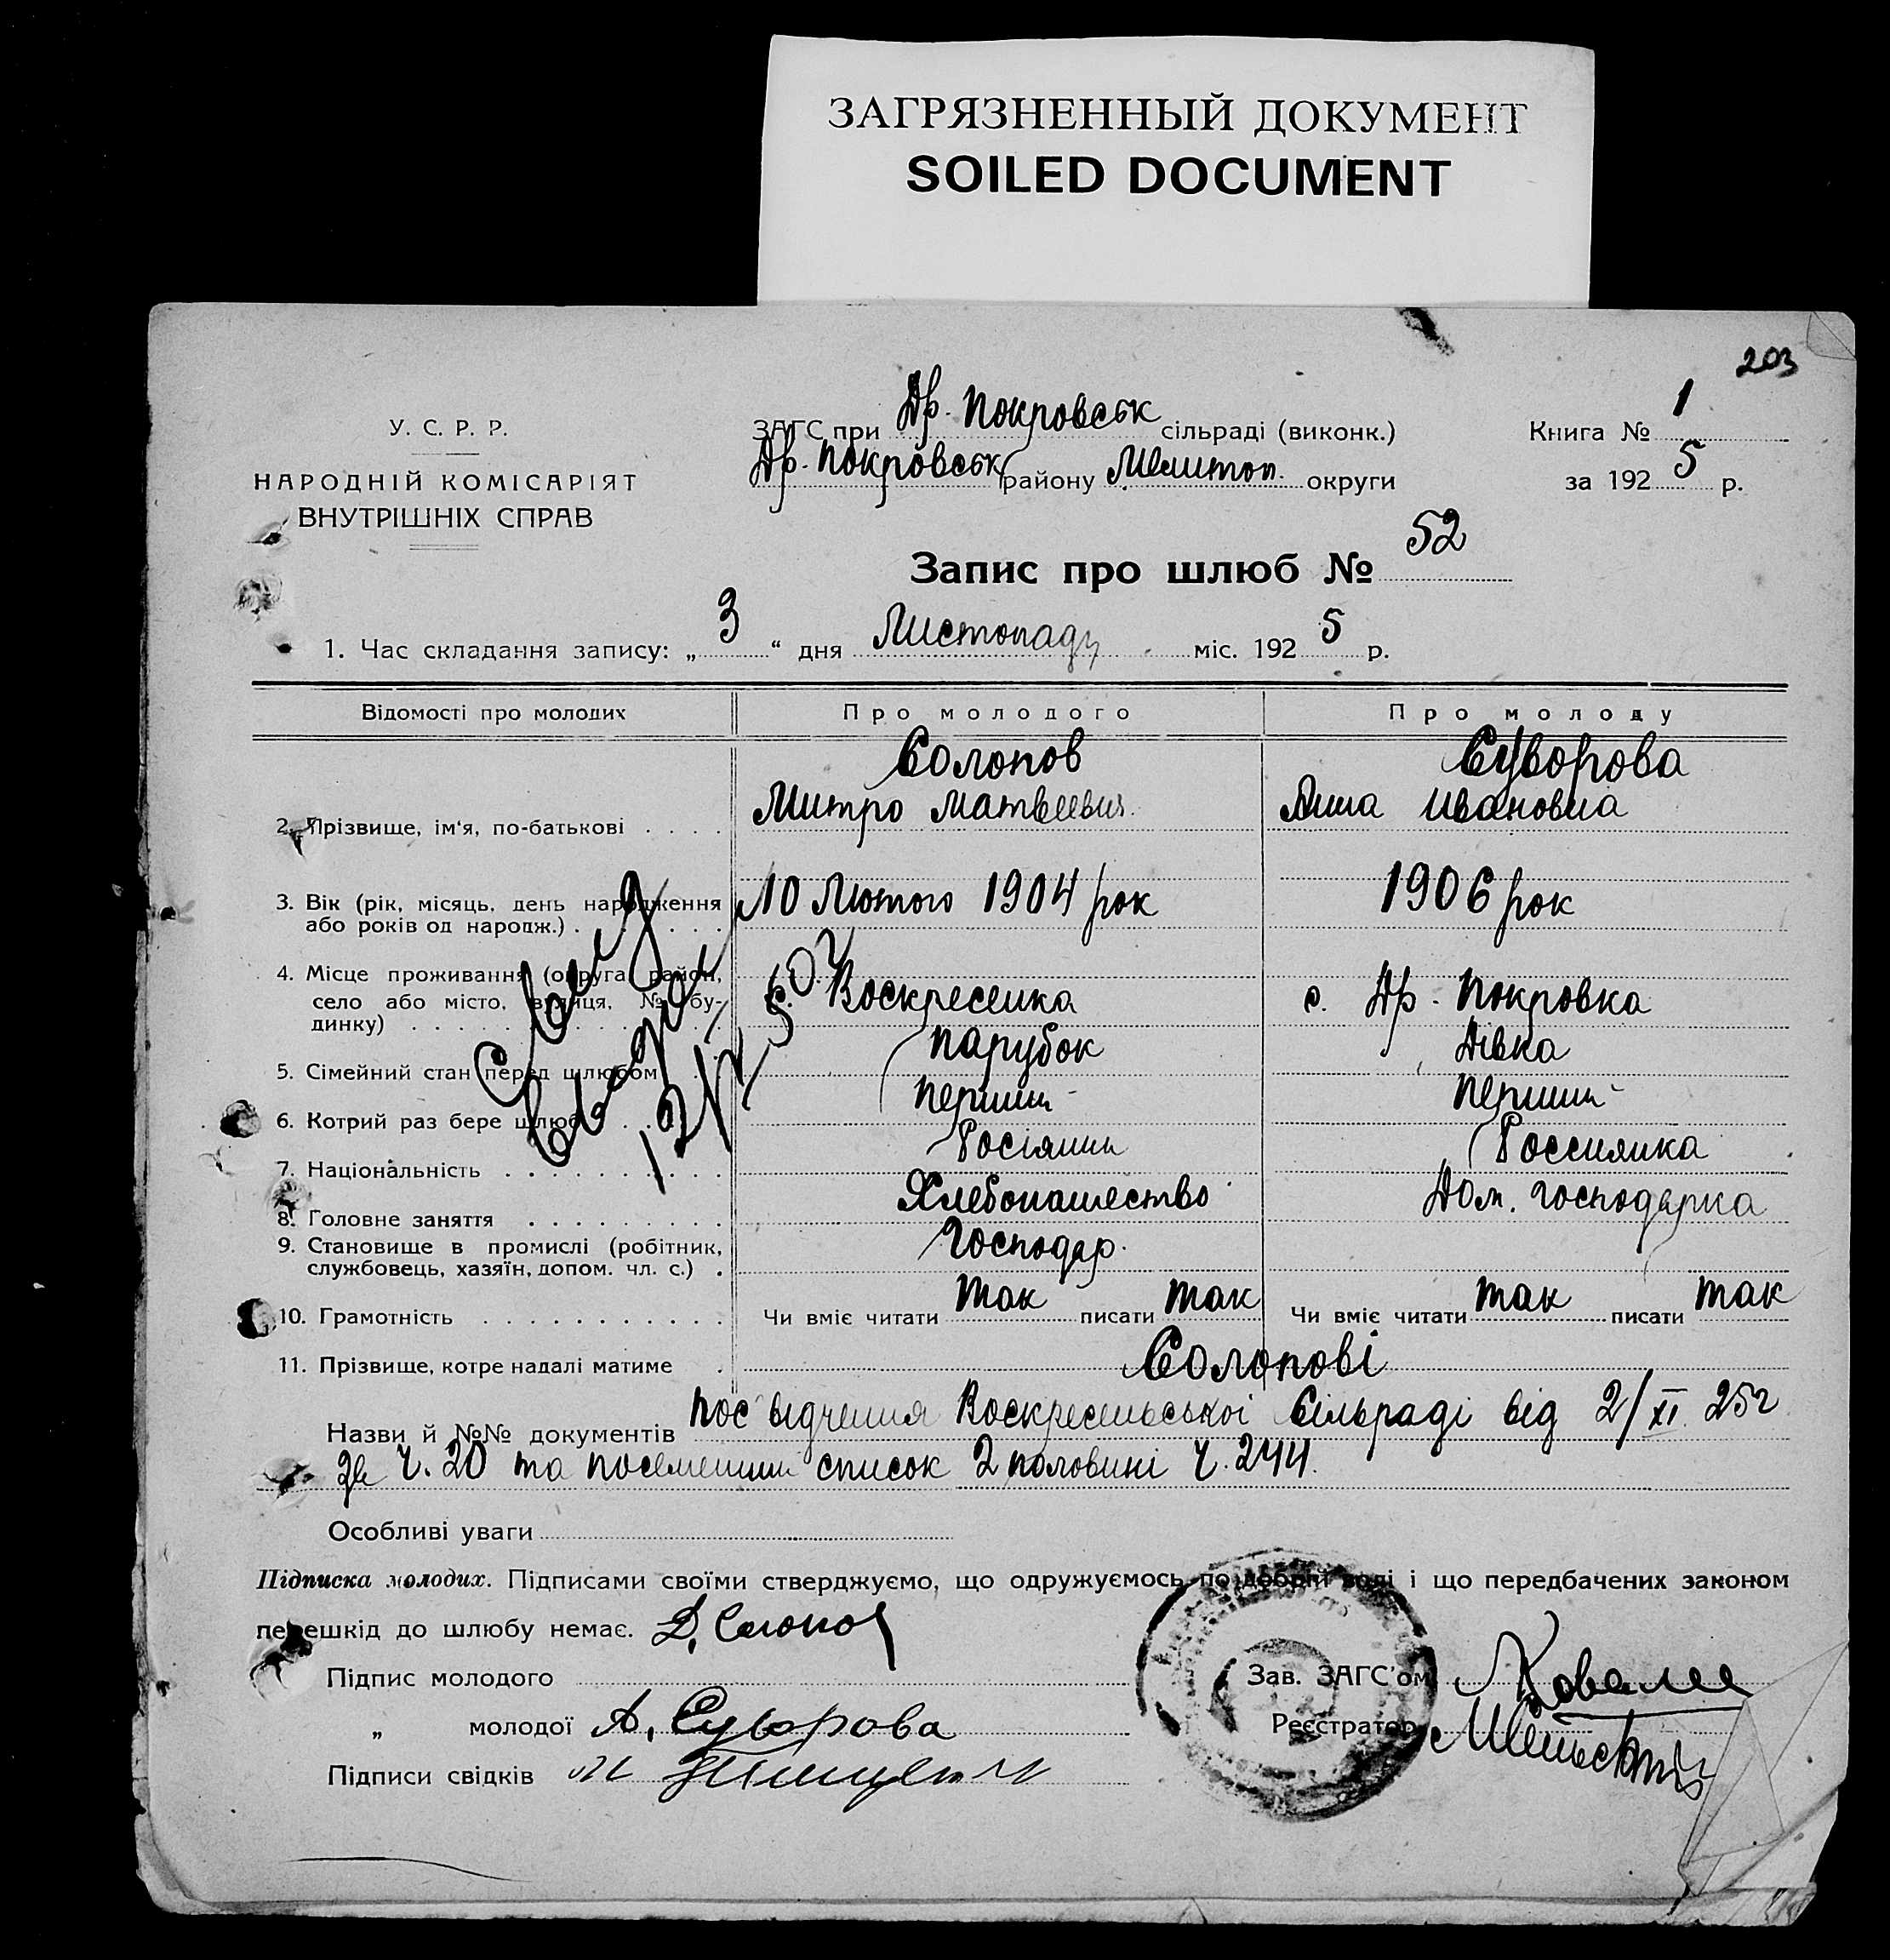 ЗАГРЯЗНЕННЫЙ ДОКУМЕНТ
SOILED DOCUMENT
203
У. С. Р. Р.
НАРОДНІЙ КОМІСАРІЯТ
ВНУТРІШНІХ СПРАВ
ЗАГС при Др. Покровськ сільраді (виконк.)
Др. Покровськ району Мелитоп. округи
Книга № 1
за 1925 р.
Запис про шлюб № 52
1. Час складання запису: „3“ дня Листопаду міс. 1925 р.
Відомості про молодих Про молодого Про молоду
Солопов Суворова
2. Прізвище, ім'я, по-батькові . . . . Митро Матвеевич Анна Ивановна
3. Вік (рік, місяць, день народження або років од народж.) . 10 Лютого 1904 рок 1906 рок
4. Місце проживання (округа, район, село або місто, вулиця, № будинку) Воскресенка с. Др. Покровка
5. Сімейний стан перед шлюбом парубок Дівка
6. Котрий раз бере шлюб перший перший
7. Національність Росіянин Россиянка
8. Головне заняття Хлебопашество Дом. господарка
9. Становище в промислі (робітник, службовець, хазяїн, допом. чл. с.) . Господар.
10. Грамотність Чи вміє читати так писати так Чи вміє читати так писати так
11. Прізвище, котре надалі матиме . Солопові
Назви й №№ документів посвідчення Воскресенської Сільраді від 2/XI 25 г
за Ч. 20 та посемейний список 2 половині Ч. 244.
Особливі уваги
Підписка молодих. Підписами своїми стверджуємо, що одружуємось по добрій волі і що передбачених законом
перешкід до шлюбу немає. Д. Солопов
Підпис молодого
Зав. ЗАГС'ом
„ молодої А. Суворова
Реєстратор
Підписи свідків